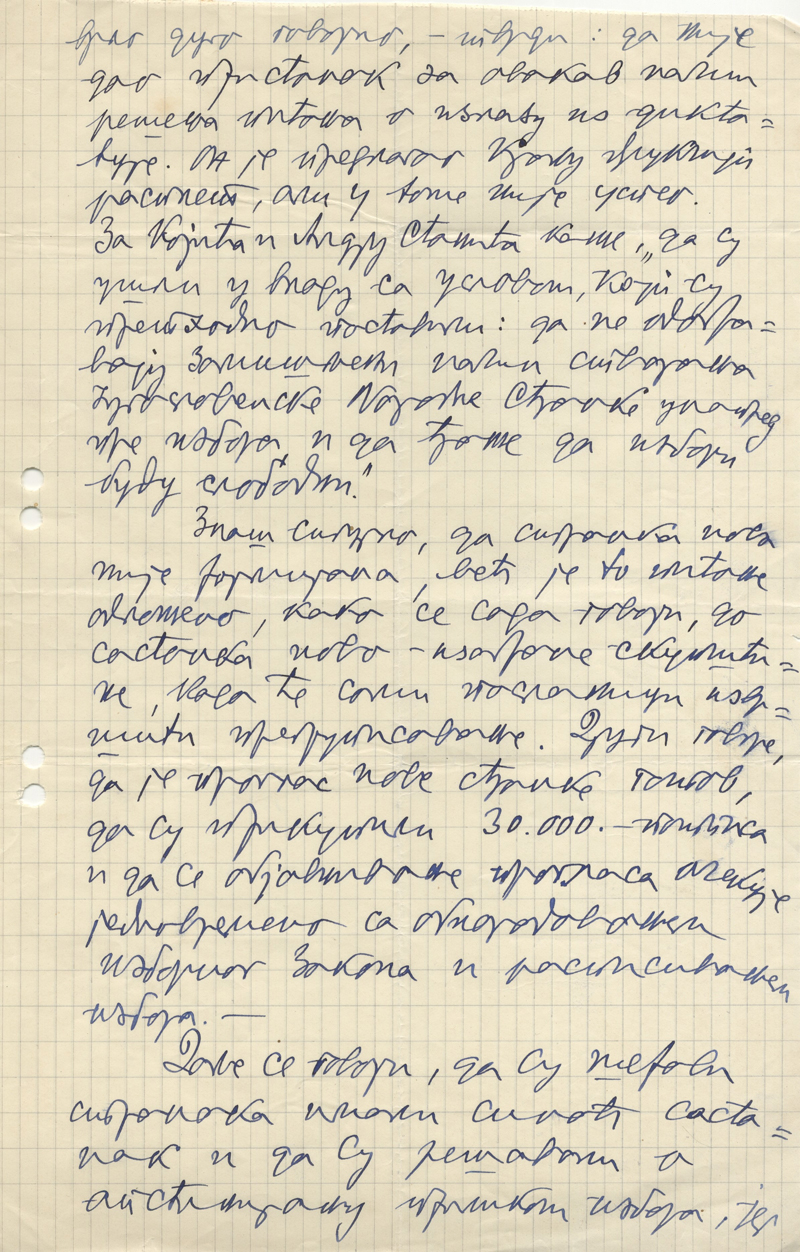 врло дуго говорио, – тврди : да није
дао пристанак за овакав начин
решења питања о излазу из дикта=
туре. Он је предлагао Краљу други
расплет, али у томе није успео.
За Којића и Андру Станића каже, „да су
ушли у владу са условом, који су
претходно поставили: да не одобра=
вају замишљени начин стварања
Југословенске Народне Странке унапред
пре избора, и да траже да избори
буду слободни."
Знам сигурно, да странка нова
није формирана, већ је то питање
одложено, како се сада говори, до
састанка ново-изабране скупшти=
не, када ће сами посланици извр=
шити прегруписавање. Други говоре,
да је проглас нове странке готов,
да су прикупили 30.000.– потписа
и да се објављивање прогласа очекује
једновремено са обнародовањем
Изборног Закона и расписивањем
избора. —
Даље се говори, да су шефови
странака имали синоћ саста=
нак и да су решавали о
апстинирању приликом избора, јер